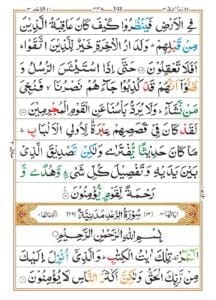 فِي الْاَرْضِ فَيَنْظُرُوْا كَيْفَ كَانَ عَاقِبَةُ الَّذِيْنَ
مِنْ قَبْلِهِمْ ؕ وَلَدَارُ الْاٰخِرَةِ خَيْرٌ لِّلَّذِيْنَ اتَّقَوْا ؕ
اَفَلَا تَعْقِلُوْنَ حَتّٰۤى اِذَا اسْتَيْـَٔسَ الرُّسُلُ وَ
ظَنُّوْۤا اَنَّهُمْ قَدْ كُذِبُوْا جَآءَهُمْ نَصْرُنَا ۙ فَنُجِّيَ
مَنْ نَّشَآءُ ؕ وَلَا يُرَدُّ بَاْسُنَا عَنِ الْقَوْمِ الْمُجْرِمِيْنَ
لَقَدْ كَانَ فِيْ قَصَصِهِمْ عِبْرَةٌ لِّاُولِي الْاَلْبَابِ ؕ
مَا كَانَ حَدِيْثًا يُّفْتَرٰى وَلٰكِنْ تَصْدِيْقَ الَّذِيْ
بَيْنَ يَدَيْهِ وَتَفْصِيْلَ كُلِّ شَيْءٍ وَّهُدًى وَّ
رَحْمَةً لِّقَوْمٍ يُّؤْمِنُوْنَ
سُوْرَةُ الرَّعْدِ مَدَنِيَّةٌ
بِسْمِ اللّٰهِ الرَّحْمٰنِ الرَّحِيْمِ
الٓمّٓرٰ ۟ تِلْكَ اٰيٰتُ الْكِتٰبِ ؕ وَالَّذِيْۤ اُنْزِلَ اِلَيْكَ
مِنْ رَّبِّكَ الْحَقُّ وَلٰكِنَّ اَكْثَرَ النَّاسِ لَا يُؤْمِنُوْنَ